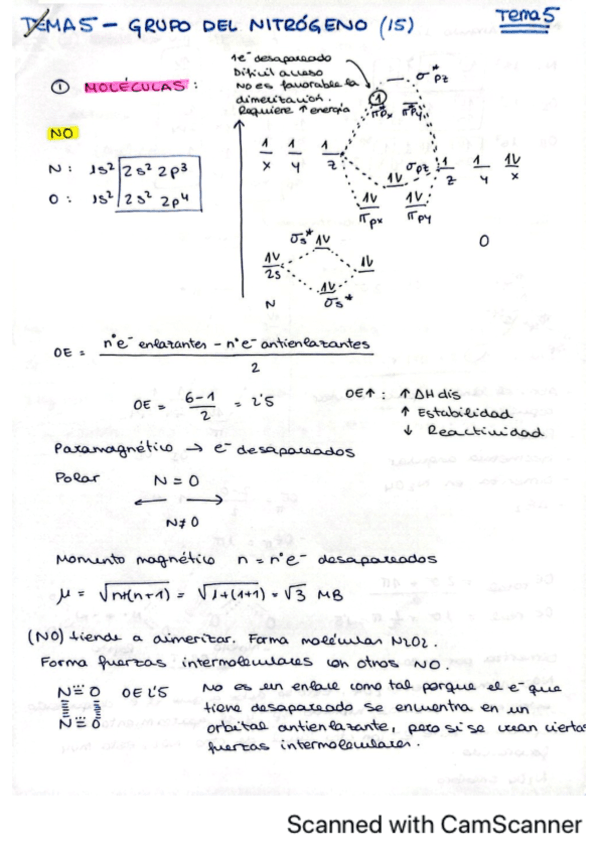 TEMA5 - GRUPO DEL NITRÓGENO (15)
Tema5
① MOLÉCULAS:
1e⁻ desapareado
Difícil acceso
No es favorable la
dimerización.
Requiere ↑ energía
σ*pz
π*px π*py
NO
N: 1s² 2s² 2p³
O: 1s² 2s² 2p⁴
1 1 1
x y z
σpz
1 1 1V
z y x
1V
1V 1V
πpx πpy
σs* 1V
1V
2s
1V
1V
σs*
N
O
OE = nºe⁻ enlazantes - nºe⁻ antienlazantes
2
OE = 6-1 = 2'5
2
OE↑: ↑ ΔH dis
↑ Estabilidad
↓ Reactividad
Paramagnético → e⁻ desapareados
Polar N = O
N≠O
Momento magnético n = nºe⁻ desapareados
μ = √n+(n+1) = √1+(1+1) = √3 MB
(NO) tiende a dimerizar. Forma molécular N₂O₂.
Forma fuerzas intermoleculares con otros NO.
N = O OE 2'5
N = O
No es un enlace como tal porque el e⁻ que
tiene desapareado se encuentra en un
orbital antienlazante, pero si se crean ciertas
fuerzas intermoleculares.
Scanned with CamScanner